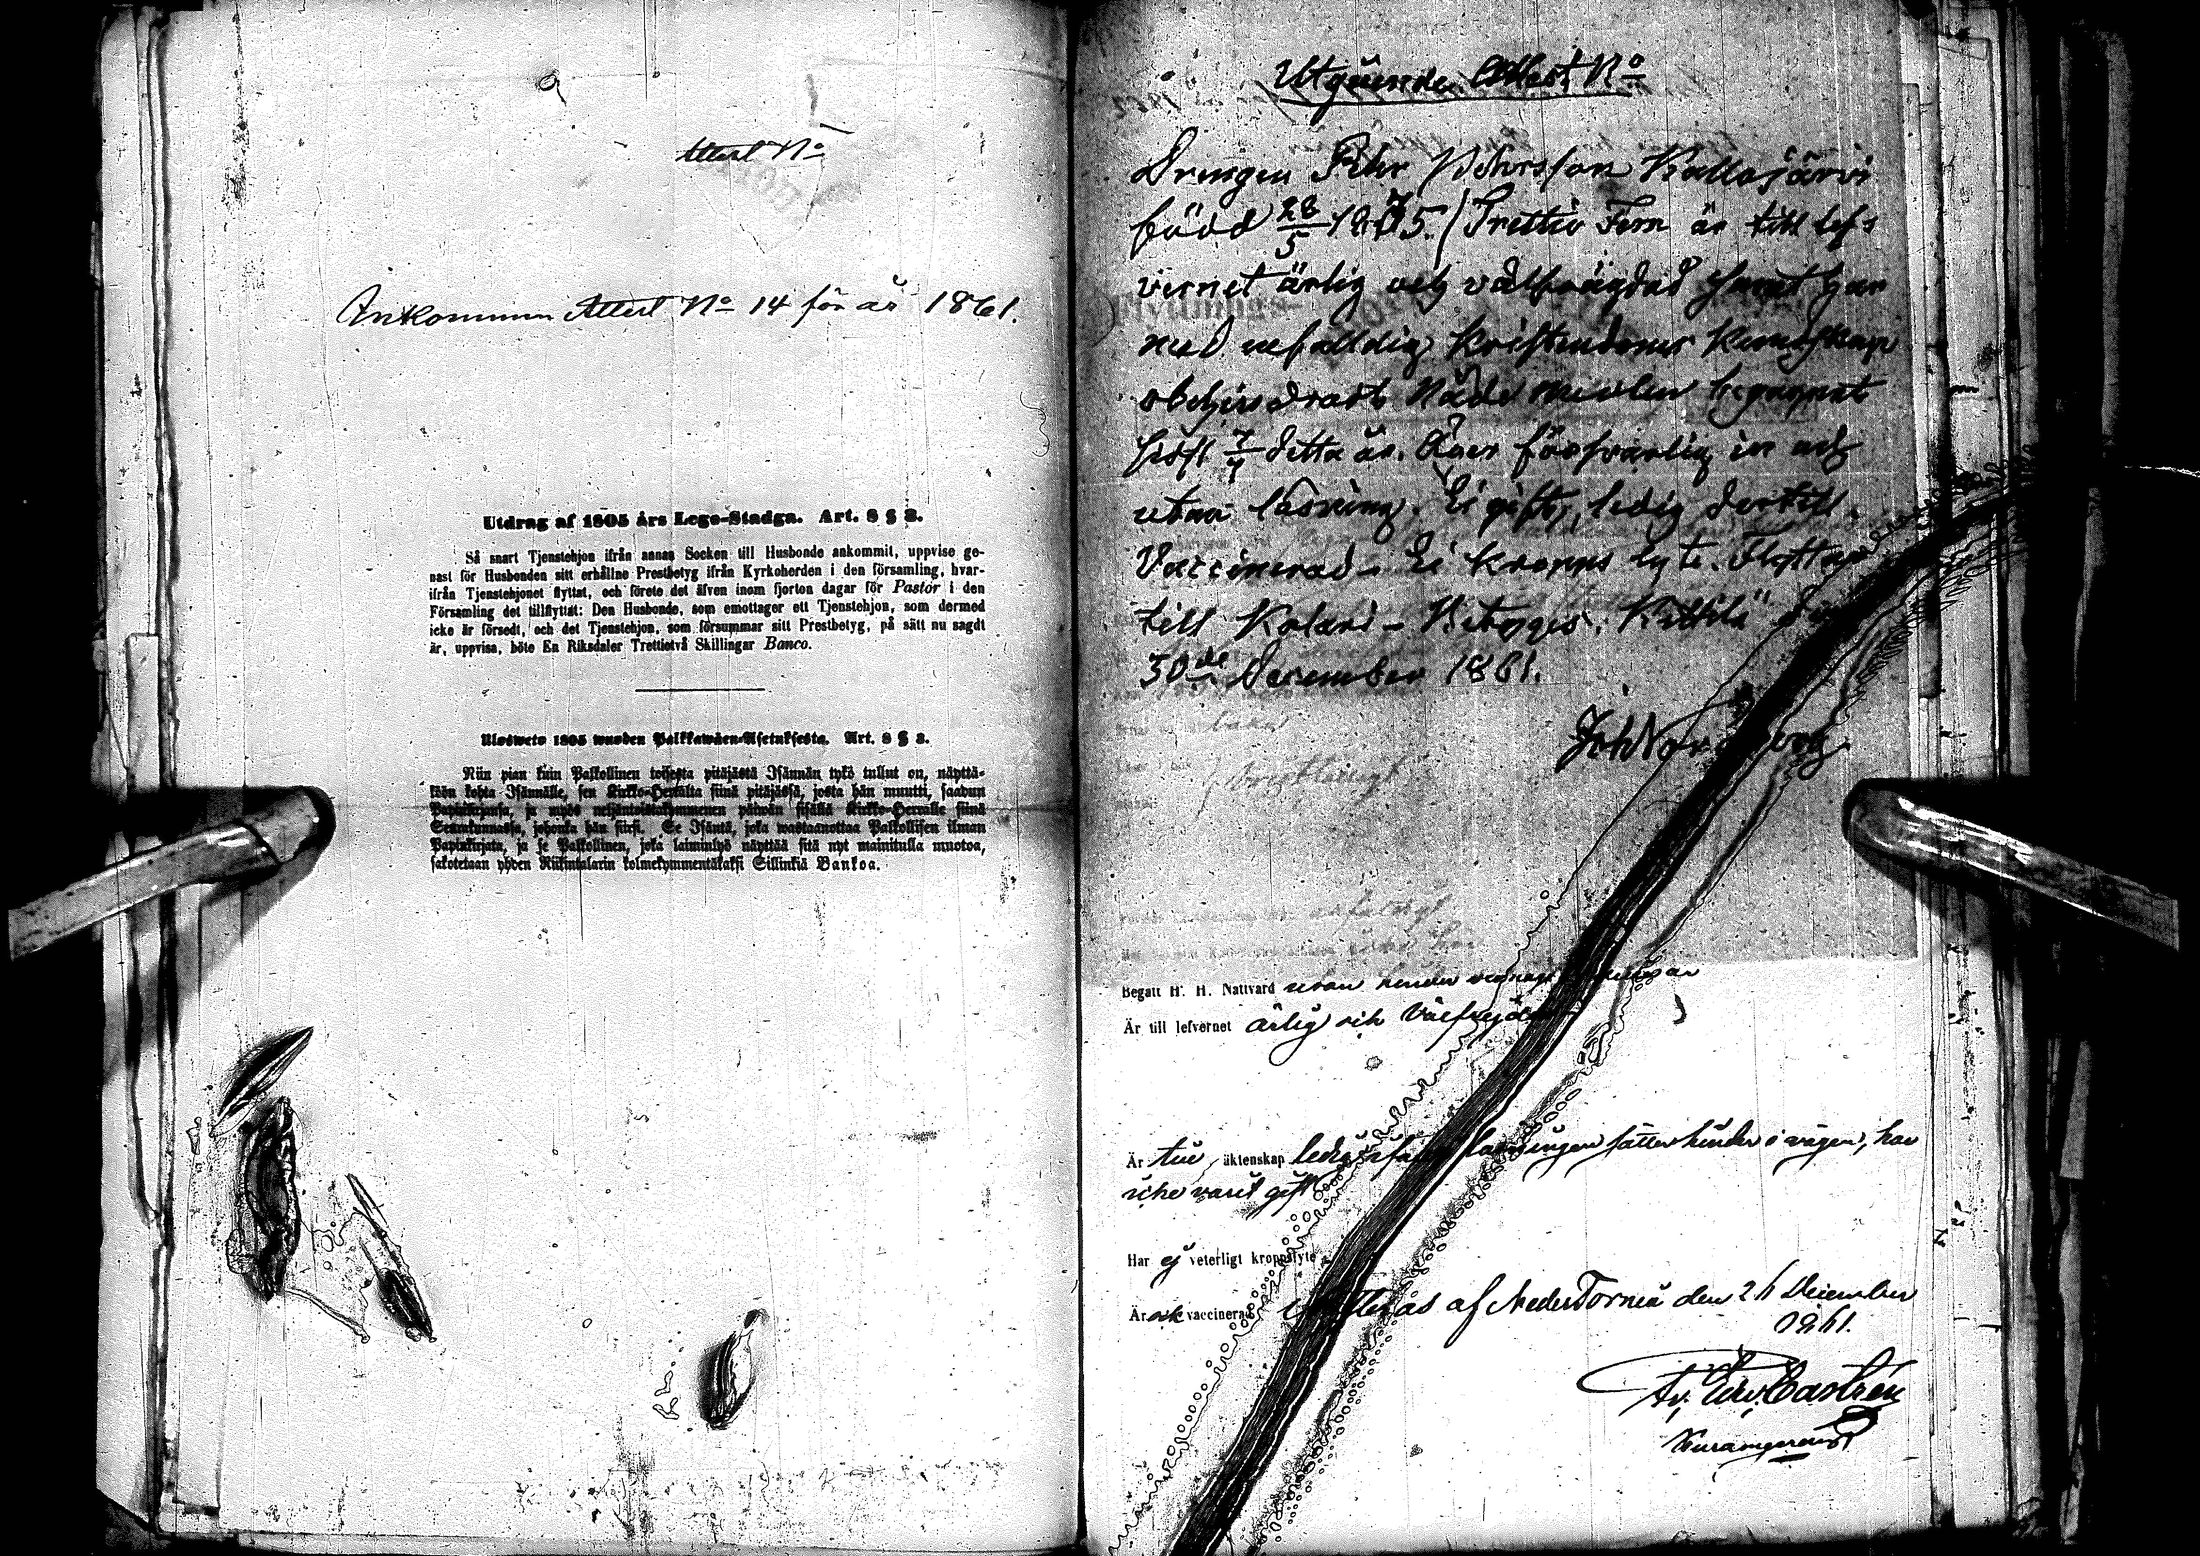 Attest No
Ankommen Attest No 14 för år 1861.
Utdrag af 1805 års Lego-Stadga. Art. 8 § 3.
Så snart Tjenstehjon ifrån annan Socken till Husbonde ankommit, uppvise ge-
nast för Husbonden sitt erhållne Prestbetyg ifrån Kyrkoherden i den församling, hvar-
ifrån Tjenstehjonet flyttat, och förete det äfven inom fjorton dagar för Pastor i den
Församling det tillflyttat: Den Husbonde, som emottager ett Tjenstehjon, som dermed
icke är försedt, och det Tjenstehjon, som försummar sitt Prestbetyg, på sätt nu sagdt
är, uppvisa, böte En Riksdaler Trettietvå Skillingar Banco.
Ulosweto 1805 wuoden Palkkawäen-Asetuksesta. Art. 8 § 3.
Niin pian kuin Palkollinen toisesta pitäjästä Isännän tykö tullut on, näyttä-
köön kohta Isännälle, sen Kirkko-Herralta siinä pitäjässä, josta hän muutti, saadun
Papinkirjansa, ja myös neljäntoistakymmenen päiwän sisällä Kirkko-Herralle siinä
Seurakunnassa, johonka hän siirsi. Se Isäntä, joka wastaanottaa Palkollisen ilman
Papinkirjata, ja se Palkollinen, joka laiminlyö näyttää sitä nyt mainitulla muotoa,
sakotetaan yhden Riikintalarin kolmekymmentäkaksi Sillinkiä Bankoa.
Utgående Attest No
Drengen Petter Pettersson Kallojärvi
född 28/5 1835. (Trettio Fem är till lef-
vernet ärlig och välfrägdad samt har
med enfalldig kristendoms kunskap
obehindradt Nåde medlen begagnat
sist 7/7 detta år. Äger försvarlig in och
utan läsning. Ei gift, ledig dertill.
Vaccinerad. Ei kropps lyte. Flyttar
till Kolari. Betygas. Kittilä d
30de December 1861.
Begått H. H. Nattvard utan hinder
Är till lefvernet ärlig och välfrejdad
Är till äktenskap ledig sätter hinder i vägen, har
icke varit gift
Har ej veterligt kroppslyte
Är ock vaccinerad attesteras af NederTorneå den 26 December
1861.
Castrén